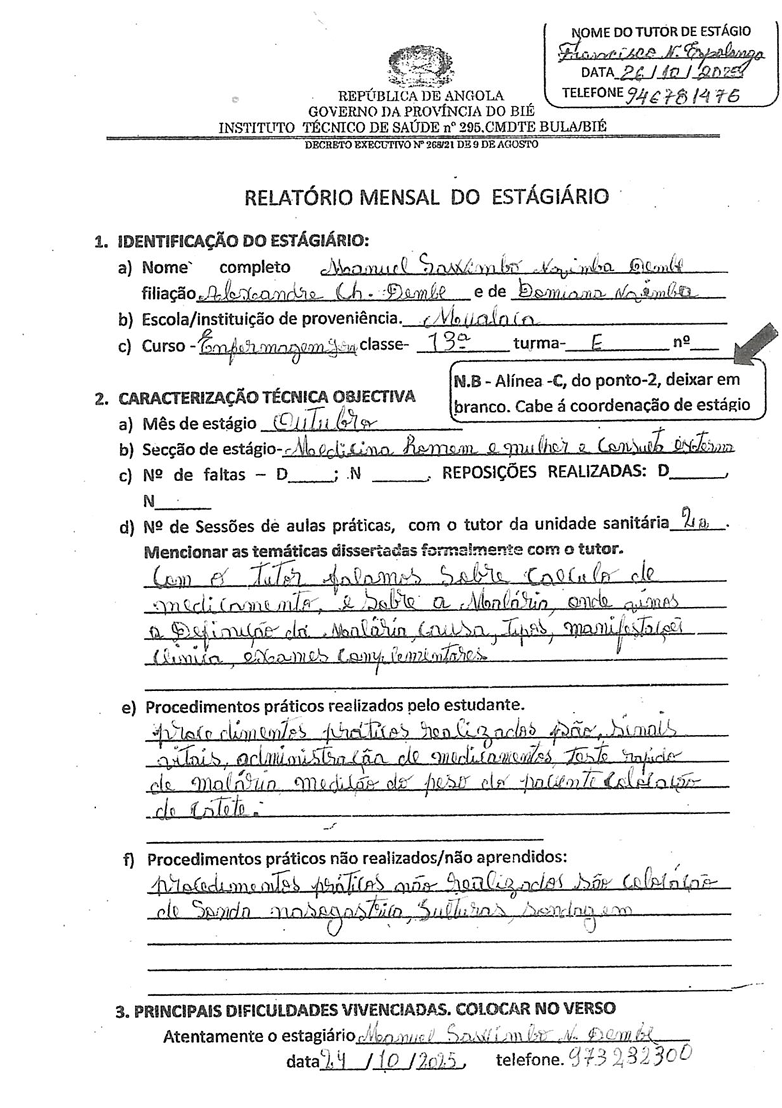 NOME DO TUTOR DE ESTÁGIO
Francisco N.
DATA 26/10/2025
TELEFONE 946781476
REPÚBLICA DE ANGOLA
GOVERNO DA PROVÍNCIA DO BIÉ
INSTITUTO TÉCNICO DE SAÚDE nº 295.CMDTE BULA/BIÉ
DECRETO EXECUTIVO Nº 268/21 DE 9 DE AGOSTO
RELATÓRIO MENSAL DO ESTÁGIÁRIO
1. IDENTIFICAÇÃO DO ESTÁGIÁRIO:
a) Nome` completo Manuel Saxximbo Dembe
filiação Alexandre Ch. Dembe e de Domiana
b) Escola/instituição de proveniência.
c) Curso - Enfermagem classe- 13ª turma- E nº
N.B - Alínea -C, do ponto-2, deixar em
branco. Cabe á coordenação de estágio
2. CARACTERIZAÇÃO TÉCNICA OBJECTIVA
a) Mês de estágio Outubro
b) Secção de estágio- Medicina homem e mulher e Consulta externa
c) Nº de faltas – D ; N . REPOSIÇÕES REALIZADAS: D ,
N
d) Nº de Sessões de aulas práticas, com o tutor da unidade sanitária 2a .
Mencionar as temáticas dissertadas formalmente com o tutor.
Com o Tutor falamos Sobre Calculo de
medicamento, e Sobre a Malária, onde vimos
a Definição da Malária, Causa, tipos, manifestações
Clinica, exames Complementares.
e) Procedimentos práticos realizados pelo estudante.
procedimentos práticos realizados são, Sinais
vitais, administração de medicamentos, teste rapido
de malária medição do peso do paciente Colocação
de
f) Procedimentos práticos não realizados/não aprendidos:
procedimentos práticos não realizados são colocação
de Sonda nasogastrica, Sulturas, sondagem
3. PRINCIPAIS DIFICULDADES VIVENCIADAS. COLOCAR NO VERSO
Atentamente o estagiário Manuel Saxximbo N. Dembe
data 24 /10 /2025, telefone. 973282300